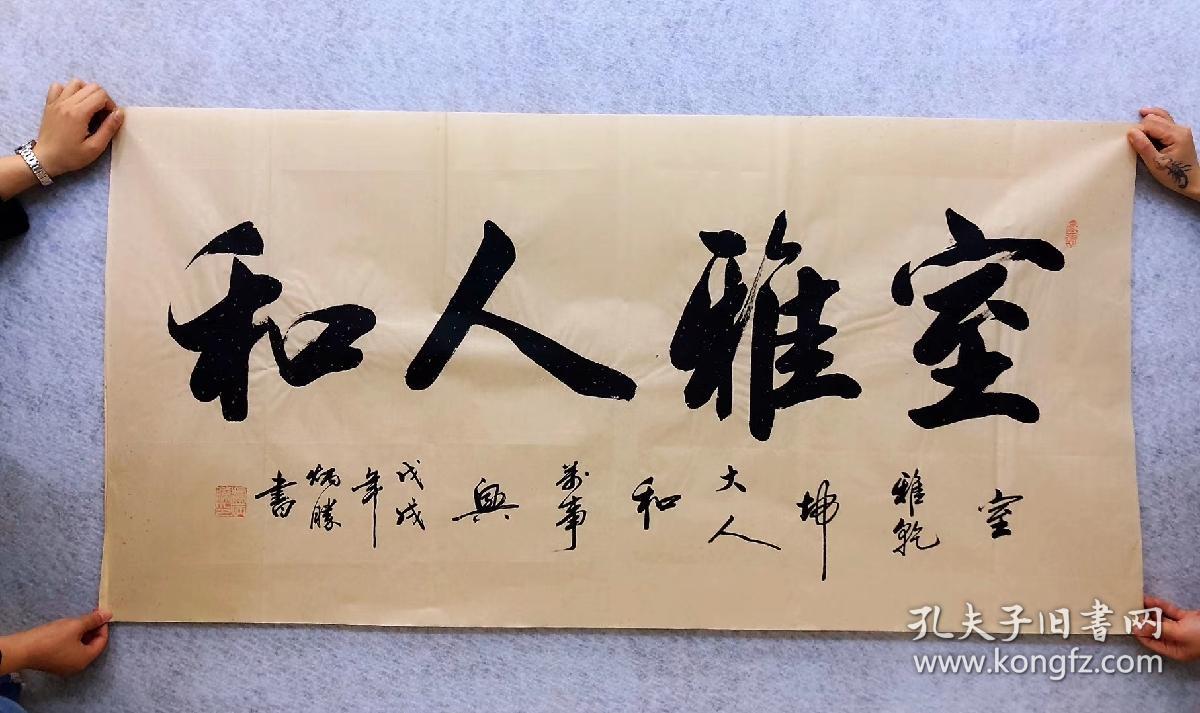 室雅人和
室雅乾坤大人和萬事興戊戌年炳勝書
孔夫子旧書网
www.kongfz.com